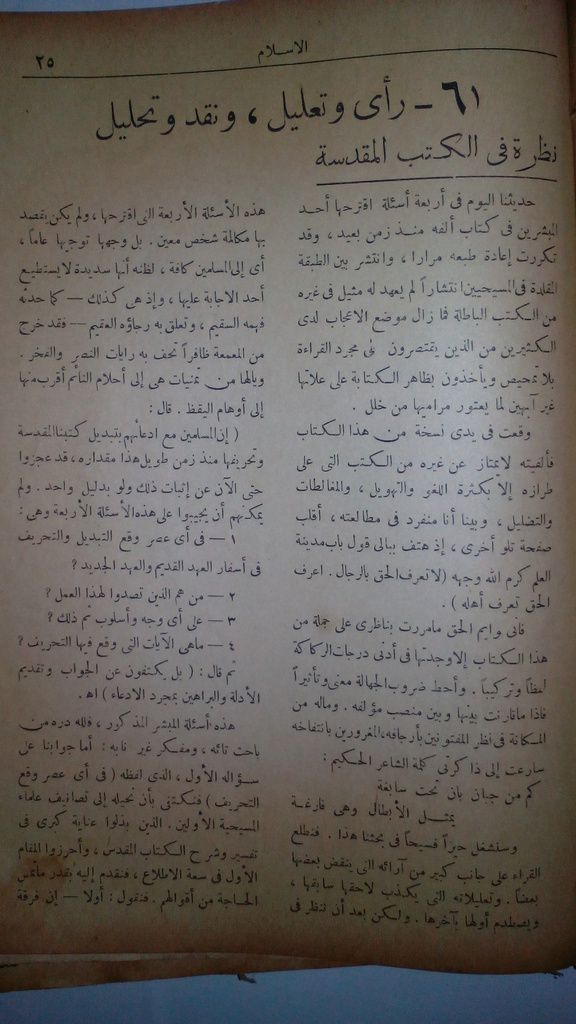 الاسلام
٢٥
٦١ - رأى وتعليل ، ونقد وتحليل
نظرة فى الكتب المقدسة
حديثنا اليوم فى أربعة أسئلة اقترحها أحد
المبشرين فى كتاب ألفه منذ زمن بعيد ، وقد
تكررت إعادة طبعه مرارا ، وانتشر بين الطبقة
المقلدة فى المسيحيين انتشاراً لم يعهد له مثيل فى غيره
من الكتب الباطلة فما زال موضع الاعجاب لدى
الكثيرين من الذين يقتصرون على مجرد القراءة
بلا تمحيص ويأخذون بظاهر الكتابة على علاتها
غير آبهين لما يعتور مراميها من خلل .
وقعت فى يدى نسخة من هذا الكتاب
فألفيته لا يمتاز عن غيره من الكتب التى على
طرازه إلا بكثرة اللغو والتهويل ، والمغالطات
والتضليل ، وبينا أنا منفرد فى مطالعته ، أقلب
صفحة تلو أخرى ، إذ هتف ببالى قول باب مدينة
العلم كرم الله وجهه ( لا تعرف الحق بالرجال . اعرف
الحق تعرف أهله ) .
فانى وايم الحق مامررت بناظرى على جملة من
هذا الكتاب إلا وجدتها فى أدنى درجات الركاكة
لفظاً وتركيباً . وأحط ضروب الجهالة معنى وتأثيراً
فاذا ماقارنت بينها وبين منصب مؤلفه . وماله من
المكانة فى نظر المفتونين بأرجافه ، المغرورين بانتفاخه
سارعت إلى ذاكرتى كلمة الشاعر الحكيم :
كم من جبان بان تحت سابغة
يمثل الأبطال وهى فارغة
وسنشغل حيزاً فسيحاً فى بحثنا هذا . فنطلع
القراء على جانب كبير من آرائه التى ينقض بعضها
بعضاً . وتعليلاته التى يكذب لاحقها سابقها ،
ويصطدم أولها بآخرها . ولكن بعد أن ننظر فى
هذه الأسئلة الأربعة التى اقترحها ، ولم يكن يقصد
بها مكالمة شخص معين . بل وجهها توجيها عاماً ،
أى إلى المسلمين كافة ، لظنه أنها سديدة لا يستطيع
أحد الاجابة عليها ، وإذ هى كذلك — كما حدثه
فهمه السقيم ، وتعلق به رجاؤه العقيم — فقد خرج
من المعمعة ظافراً تحف به رايات النصر والفخر .
ويالها من تمنيات هى إلى أحلام النائم أقرب منها
إلى أوهام اليقظ . قال :
( إن المسلمين مع ادعائهم بتبديل كتبنا المقدسة
وتحريفها منذ زمن طويل هذا مقداره ، قد عجزوا
حتى الآن عن إثبات ذلك ولو بدليل واحد . ولم
يمكنهم أن يجيبوا على هذه الأسئلة الأربعة وهى :
١ — فى أى عصر وقع التبديل والتحريف
فى أسفار العهد القديم والعهد الجديد ؟
٢ — من هم الذين تصدوا لهذا العمل ؟
٣ — على أى وجه وأسلوب تم ذلك ؟
٤ — ماهى الآيات التى وقع فيها التحريف ؟
ثم قال : ( بل يكتفون عن الجواب وتقديم
الأدلة والبراهين بمجرد الادعاء ) اهـ .
هذه أسئلة المبشر المذكور ، فلله دره من
باحث تائه ، ومفكر غير نابه : أما جوابنا عن
سؤاله الأول ، الذى لفظه ( فى أى عصر وقع
التحريف ) فنكتفى بأن نحيله إلى تصانيف علماء
المسيحية الأولين . الذين بذلوا عناية كبرى فى
تفسير وشرح الكتاب المقدس ، وأحرزوا المقام
الأول فى سعة الاطلاع ، فنقدم إليه بقدر ماتمس
الحاجة من أقوالهم . فنقول : أولا — إن فرقة